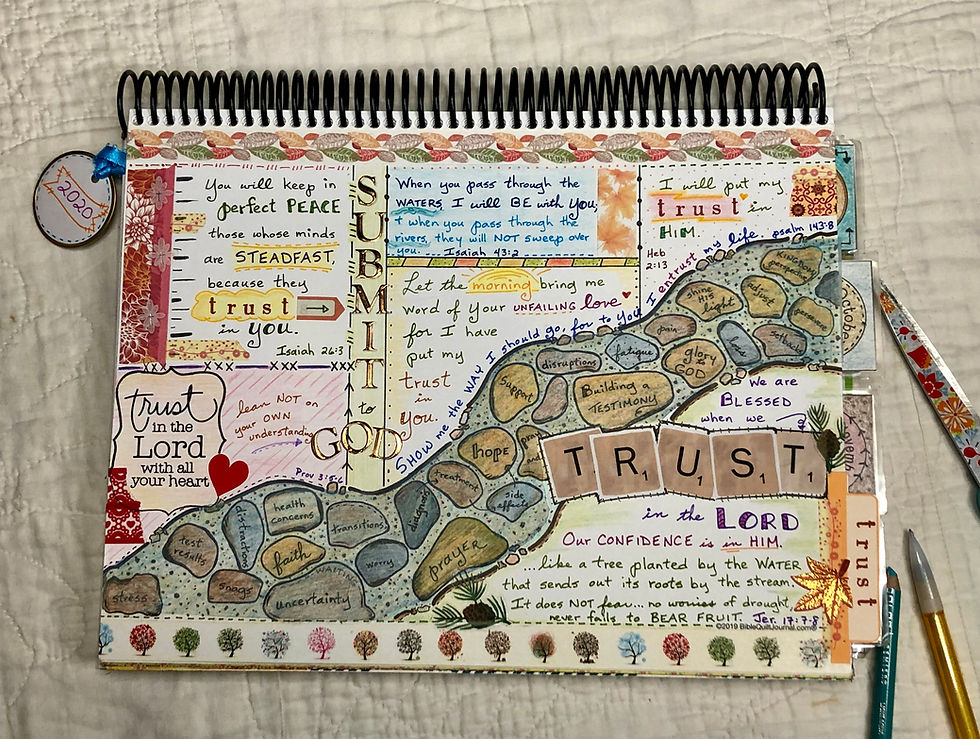 2020
You will keep in
perfect PEACE
those whose minds
are STEADFAST,
because they
trust
in you.
Isaiah 26:3
SUBMIT
to
GOD
When you pass through the
WATERS, I will BE with You;
+ when you pass through the
rivers, they will NOT sweep over
you. Isaiah 43:2
I will put my
trust in
HIM.
Heb
2:13
Let the morning bring me
word of your UNFAILING love
for I have
put my
trust
in
you.
SHOW me the WAY I should go, for to You I entrust my life. psalm 143:8
trust
in the
Lord
with all
your heart
lean NOT on
your OWN
understanding
Prov 3:5-6
KINGDOM
perspective
shine
HIS
light
adjust
pain
Setbacks
disruptions
fatigue
glory
to
GOD
support
Building a
TESTIMONY
hope
treatment
side
effects
diagnosis
health
concerns
transitions
distractions
test
results
faith
worry
prayer
snags
WAITING
uncertainty
stress
We are
BLESSED
when we
TRUST
1 1 1 1
in the LORD
OUR CONFIDENCE is in HIM.
...like a tree planted by the WATER
that sends out its roots by the stream.
It does NOT fear... no worries of drought,
never fails to BEAR FRUIT. Jer. 17:7-8
©2019 BibleQuiltJournal.com
October
trust